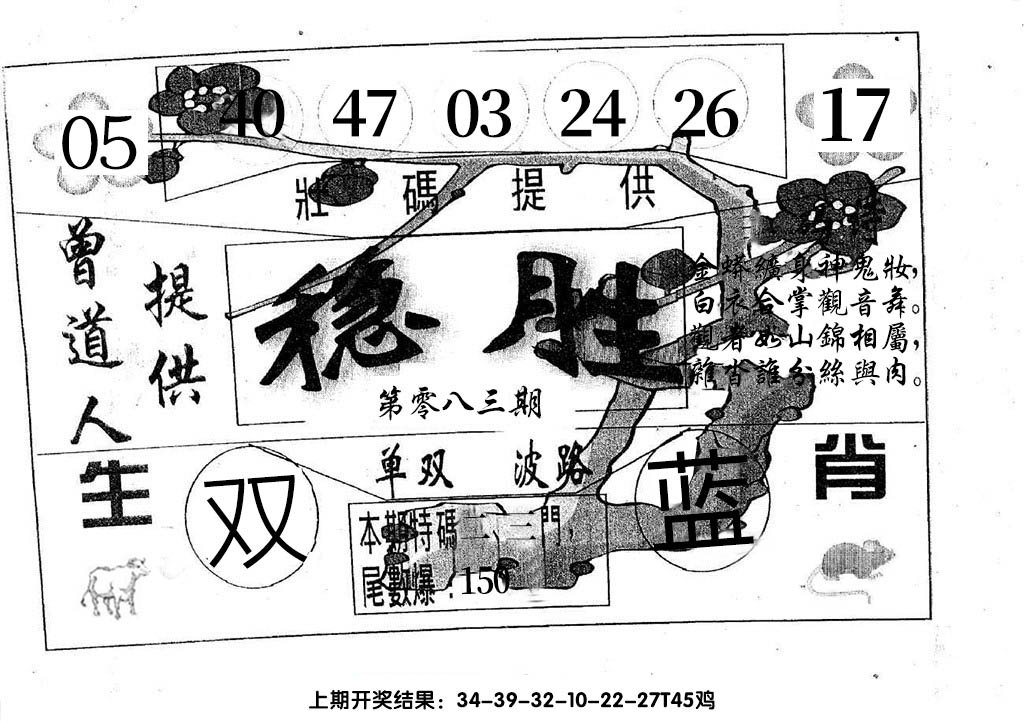 05 40 47 03 24 26 17
壯碼提供
特
曾道人
提供
稳胜
第零八三期
金蟒纏身神鬼妝，
白衣合掌觀音舞。
觀者如山錦相屬，
雜沓誰分絲與肉。
单双 波路
生肖
双
蓝
本期特碼二、三門，
尾數爆：150
上期开奖结果：34-39-32-10-22-27T45鸡